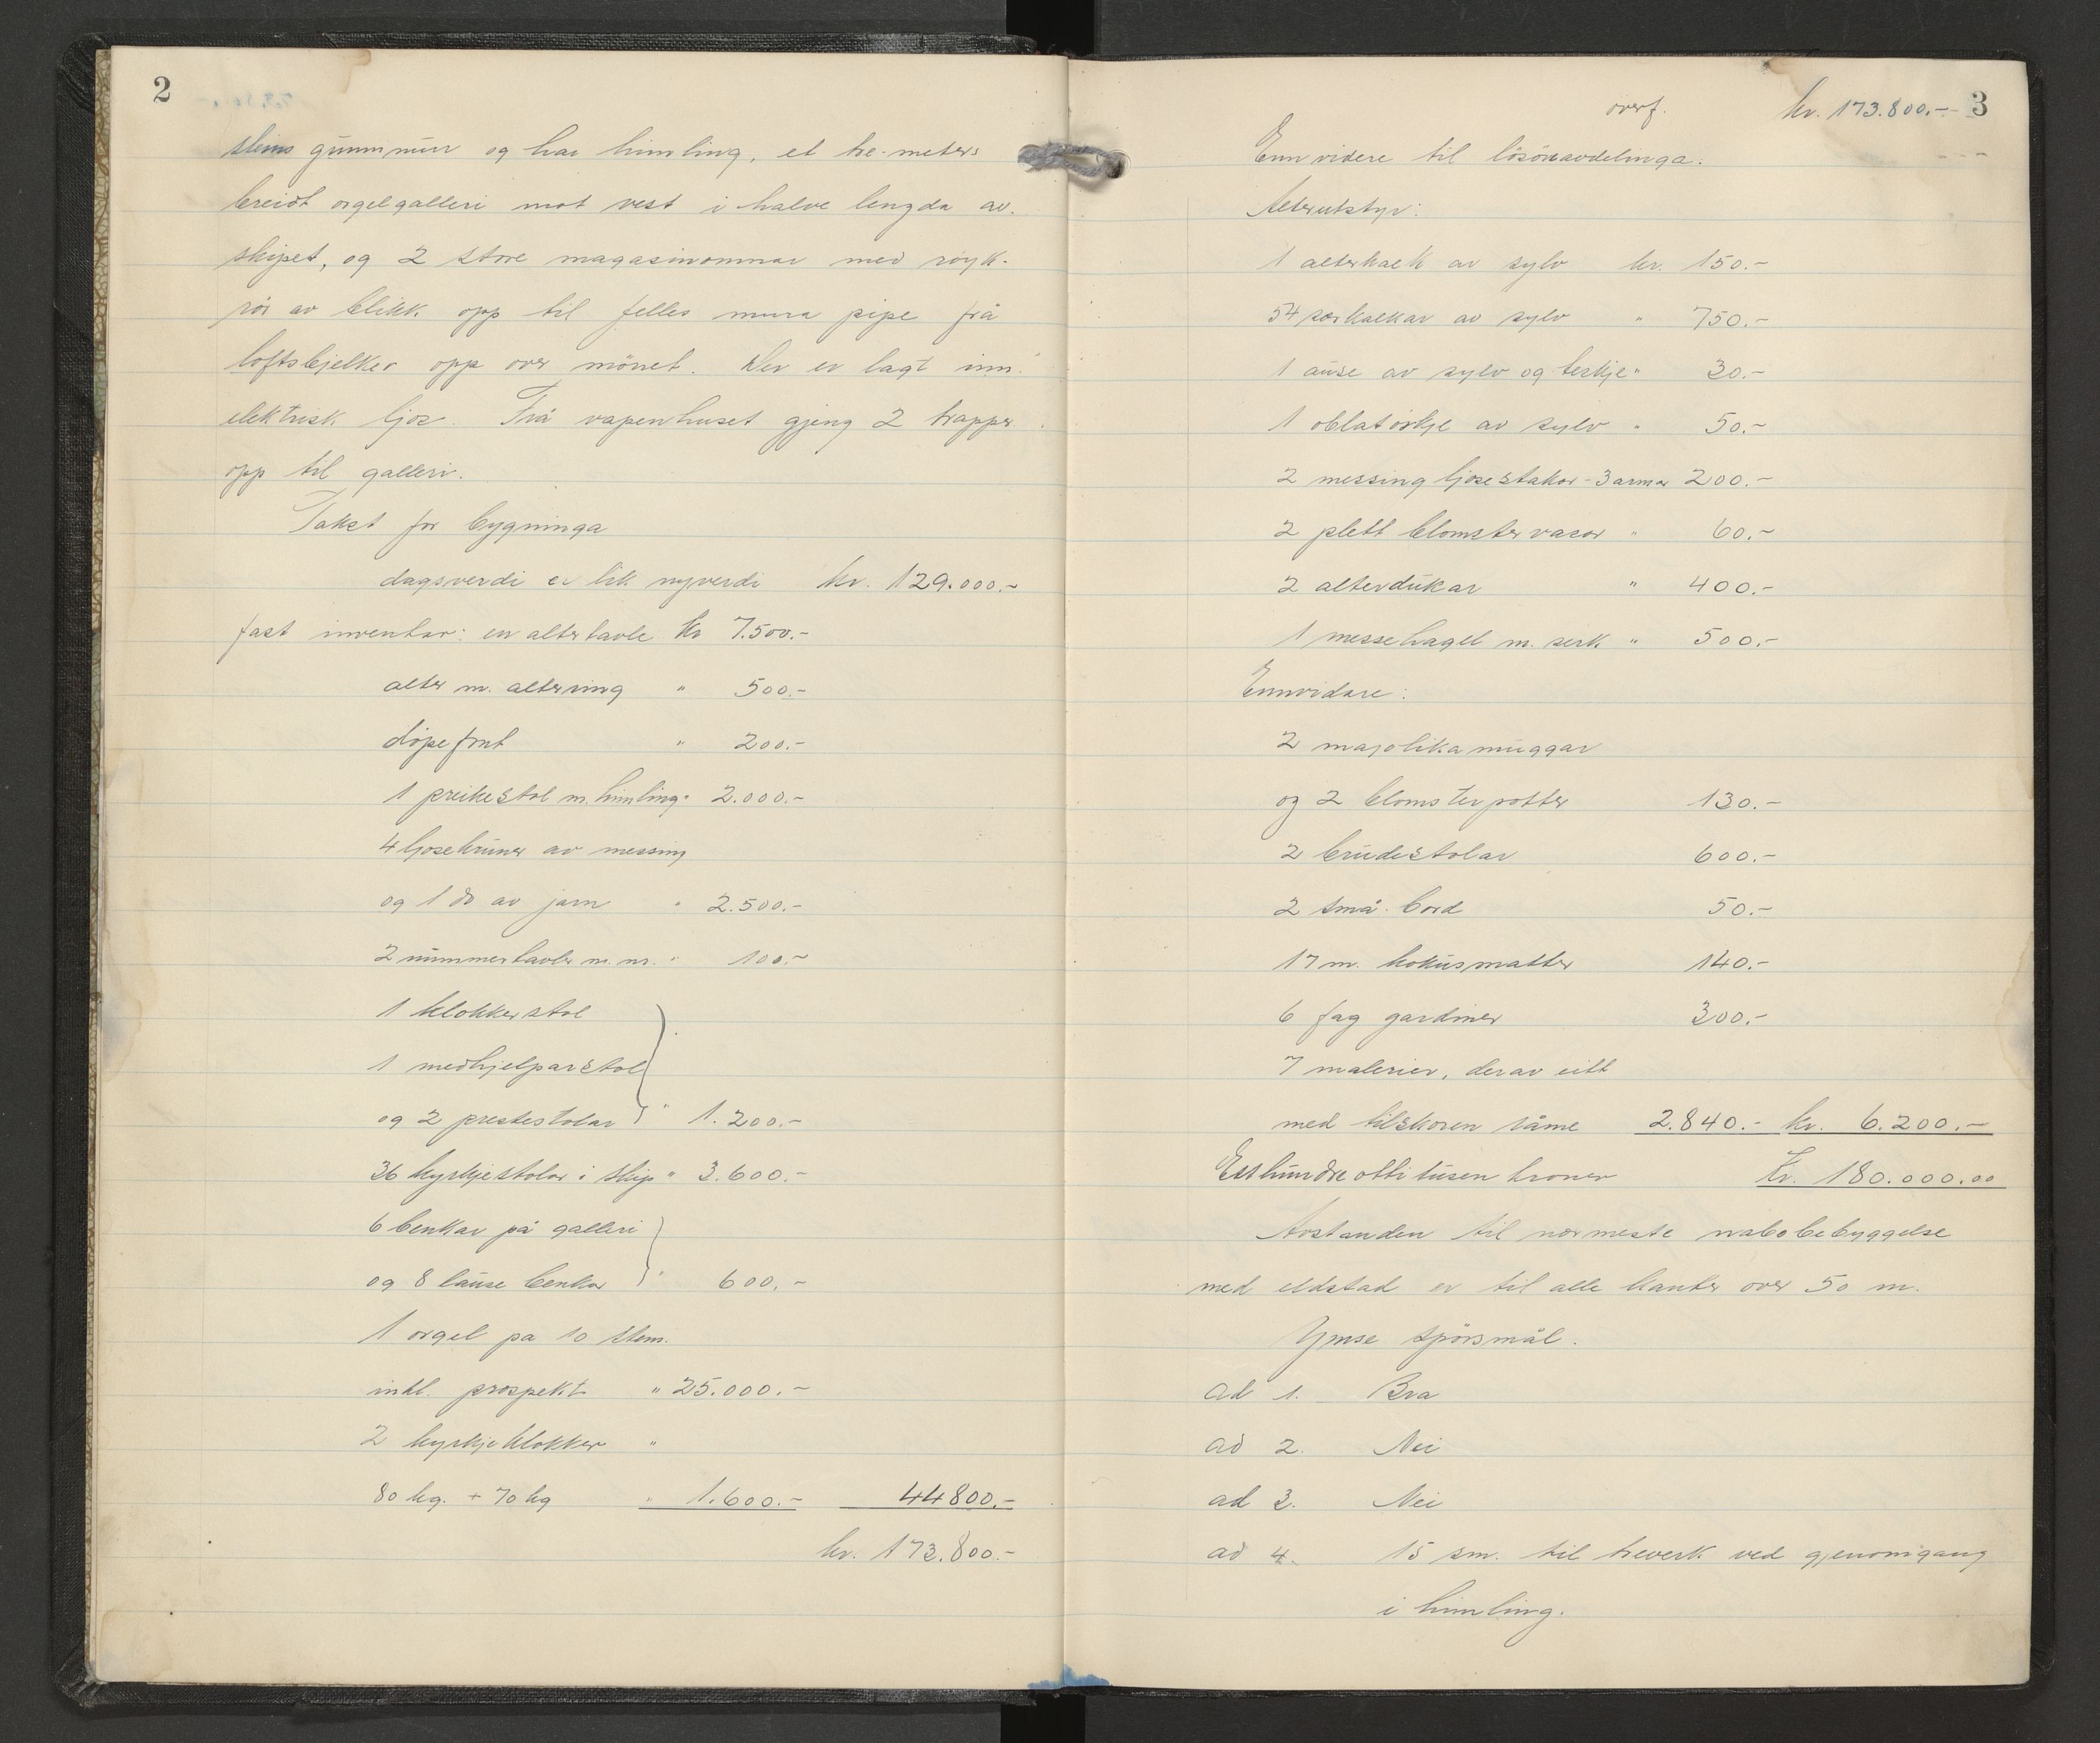 2
steins grunnmur og har himling, et tre-meters
breidt orgelgalleri mot vest i halve lengda av
skipet, og 2 store magasinomnar med röyk-
rör av blikk opp til felles mura pipe frå
loftsbjelker opp over mönet. Der er lagt inn
elektrisk ljos. Frå vapenhuset gjeng 2 trapper
opp til galleri.
Takst for bygninga
dagsverdi er lik nyverdi kr. 129.000.-
fast inventar: en altertavle kr 7.500.-
alter m. altering " 500.-
döpefont " 200.-
1 preikestol m. himling " 2.000.-
4 ljosekruner av messing
og 1 do av jarn " 2.500.-
2 nummertavler m. nr. " 100.-
1 klokkerstol
1 medhjelparstol
og 2 prestestolar " 1.200.-
36 kyrkjestolar i skip " 3.600.-
6 benkar på galleri
og 8 lause benkar " 600.-
1 orgel pa 10 stem.
inkl. prospekt " 25.000.-
2 kyrkjeklokker "
80 kg. + 70 kg " 1.600.- 44800.-
kr. 173.800.-
overf. kr. 173.800.- 3
Enn videre til lösöreavdelinga:
Alterutstyr:
1 alterkalk av sylv kr. 150.-
54 særkalkar av sylv " 750.-
1 ause av sylv og teskje " 30.-
1 oblatöskje av sylv " 50.-
2 messing ljosestakar - 3 armar 200.-
2 plett blomstervasor " 60.-
2 alterdukar " 400.-
1 messehagel m. serk " 500.-
Ennvidare:
2 majolikamuggar
og 2 blomsterpotter 130.-
2 brudestolar 600.-
2 små bord 50.-
17 m. kokusmatter 140.-
6 fag gardiner 300.-
7 malerier, derav eitt
med tilskoren råme 2.840.- kr. 6.200.-
Eethundre otti tusen kroner Kr. 180.000.00
Avstanden til nærmeste nabobebyggelse
med eldstad er til alle kanter over 50 m.
Ymse spörsmål.
ad 1. Bra
ad 2. Nei
ad 3. Nei
ad 4. 15 sm. til treverk ved gjenomgang
i himling.